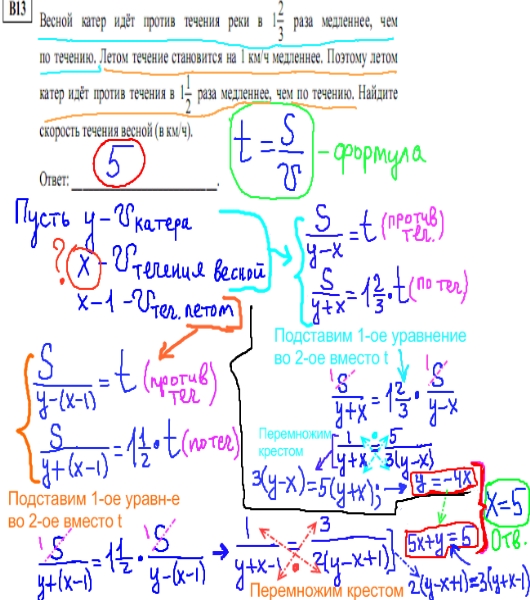 B13
Весной катер идёт против течения реки в 1 2/3 раза медленнее, чем
по течению. Летом течение становится на 1 км/ч медленнее. Поэтому летом
катер идёт против течения в 1 1/2 раза медленнее, чем по течению. Найдите
скорость течения весной (в км/ч).
Ответ: 5
t = S/v - формула
Пусть y - v катера
? x - v течения весной
x - 1 - v теч. летом
S/(y-x) = t (против теч.)
S/(y+x) = 1 2/3 · t (по теч)
Подставим 1-ое уравнение
во 2-ое вместо t
1 S/(y+x) = 1 2/3 · 1 S/(y-x)
S/(y-(x-1)) = t (против теч)
S/(y+(x-1)) = 1 1/2 · t (по теч)
Перемножим
крестом
1/(y+x) = 5/(3(y-x)
3(y-x) = 5(y+x); y = -4x
Подставим 1-ое уравн-е
во 2-ое вместо t
1 S/(y+(x-1)) = 1 1/2 · 1 S/(y-(x-1)) → 1/(y+x-1) = 3/(2(y-x+1))
Перемножим крестом
2(y-x+1) = 3(y+x-1)
5x+y=5
x=5
Отв.